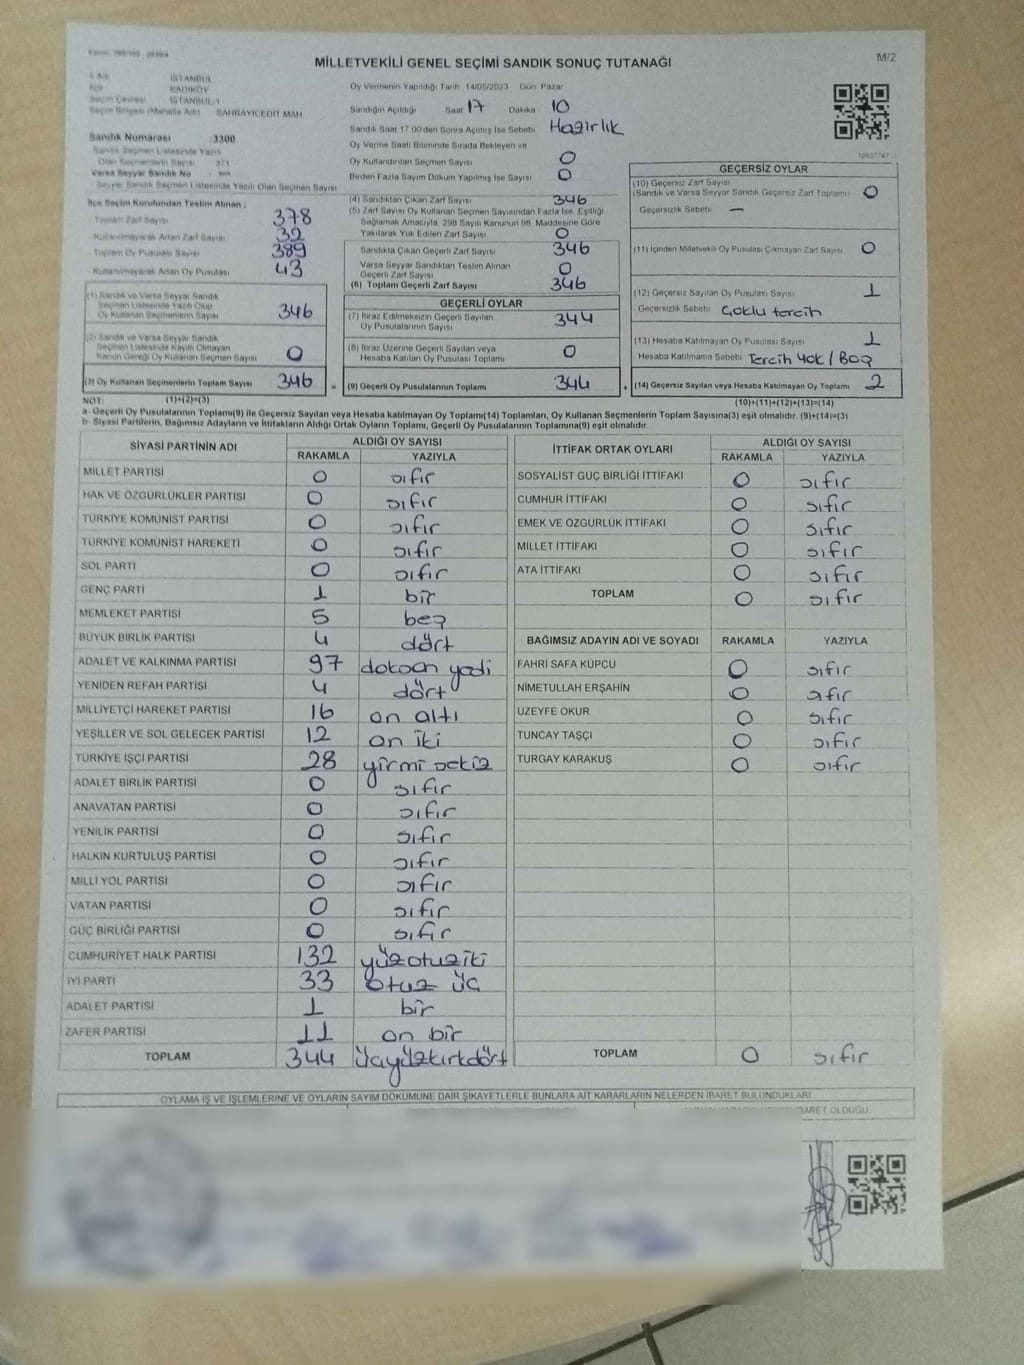 M/2
MİLLETVEKİLİ GENEL SEÇİMİ SANDIK SONUÇ TUTANAĞI
İSTANBUL
KADIKÖY
İSTANBUL-1
SAHRAYICEDİT MAH
Sandık Numarası :3300
Sandık Seçmen Listesinde Yazılı
Olan Seçmenlerin Sayısı 371
Varsa Seyyar Sandık No
Seyyar Sandık Seçmen Listesinde Yazılı Olan Seçmen Sayısı
İlçe Seçim Kurulundan Teslim Alınan ;
Toplam Zarf Sayısı 378
Kullanılmayarak Artan Zarf Sayısı 32
Toplam Oy Pusulası Sayısı 389
Kullanılmayarak Artan Oy Pusulası 43
(1) Sandık ve Varsa Seyyar Sandık
Seçmen Listesinde Yazılı Olup
Oy Kullanan Seçmenlerin Sayısı 346
(2) Sandık ve Varsa Seyyar Sandık
Seçmen Listesinde Kayıtlı Olmayan
Kanun Gereği Oy Kullanan Seçmen Sayısı 0
(3) Oy Kullanan Seçmenlerin Toplam Sayısı 346
Oy Vermenin Yapıldığı Tarih 14/05/2023 Gün Pazar
Sandığın Açıldığı Saat 17 Dakika 10
Sandık Saat 17.00'den Sonra Açılmış İse Sebebi Hazırlık
Oy Verme Saati Bitiminde Sırada Bekleyen ve
Oy Kullandırılan Seçmen Sayısı 0
Birden Fazla Sayım Döküm Yapılmış İse Sayısı 0
(4) Sandıktan Çıkan Zarf Sayısı 346
(5) Zarf Sayısı Oy Kullanan Seçmen Sayısından Fazla İse, Eşitliği
Sağlamak Amacıyla, 298 Sayılı Kanunun 98. Maddesine Göre
Yakılarak Yok Edilen Zarf Sayısı 0
Sandıkta Çıkan Geçerli Zarf Sayısı 346
Varsa Seyyar Sandıktan Teslim Alınan
Geçerli Zarf Sayısı 0
(6) Toplam Geçerli Zarf Sayısı 346
GEÇERLİ OYLAR
(7) İtiraz Edilmeksizin Geçerli Sayılan
Oy Pusulalarının Sayısı 344
(8) İtiraz Üzerine Geçerli Sayılan veya
Hesaba Katılan Oy Pusulası Toplamı 0
= (9) Geçerli Oy Pusulalarının Toplamı 344 +
GEÇERSİZ OYLAR
(10) Geçersiz Zarf Sayısı
(Sandık ve Varsa Seyyar Sandık Geçersiz Zarf Toplamı) 0
Geçersizlik Sebebi : —
(11) İçinden Milletvekili Oy Pusulası Çıkmayan Zarf Sayısı 0
(12) Geçersiz Sayılan Oy Pusulası Sayısı 1
Geçersizlik Sebebi : Çoklu tercih
(13) Hesaba Katılmayan Oy Pusulası Sayısı 1
Hesaba Katılmama Sebebi : Tercih Yok/Boş
(14) Geçersiz Sayılan veya Hesaba Katılmayan Oy Toplamı 2
NOT: (1)+(2)=(3) (10)+(11)+(12)+(13)=(14)
a- Geçerli Oy Pusulalarının Toplamı(9) ile Geçersiz Sayılan veya Hesaba katılmayan Oy Toplamı(14) Toplamları, Oy Kullanan Seçmenlerin Toplam Sayısına(3) eşit olmalıdır. (9)+(14)=(3)
b- Siyasi Partilerin, Bağımsız Adayların ve İttifakların Aldığı Ortak Oyların Toplamı, Geçerli Oy Pusulalarının Toplamına(9) eşit olmalıdır.
SİYASİ PARTİNİN ADI ALDIĞI OY SAYISI
RAKAMLA YAZIYLA
MİLLET PARTİSİ 0 sıfır
HAK VE ÖZGÜRLÜKLER PARTİSİ 0 sıfır
TÜRKİYE KOMÜNİST PARTİSİ 0 sıfır
TÜRKİYE KOMÜNİST HAREKETİ 0 sıfır
SOL PARTİ 0 sıfır
GENÇ PARTİ 1 bir
MEMLEKET PARTİSİ 5 beş
BÜYÜK BİRLİK PARTİSİ 4 dört
ADALET VE KALKINMA PARTİSİ 97 doksan yedi
YENİDEN REFAH PARTİSİ 4 dört
MİLLİYETÇİ HAREKET PARTİSİ 16 on altı
YEŞİLLER VE SOL GELECEK PARTİSİ 12 on iki
TÜRKİYE İŞÇİ PARTİSİ 28 yirmi sekiz
ADALET BİRLİK PARTİSİ 0 sıfır
ANAVATAN PARTİSİ 0 sıfır
YENİLİK PARTİSİ 0 sıfır
HALKIN KURTULUŞ PARTİSİ 0 sıfır
MİLLİ YOL PARTİSİ 0 sıfır
VATAN PARTİSİ 0 sıfır
GÜÇ BİRLİĞİ PARTİSİ 0 sıfır
CUMHURİYET HALK PARTİSİ 132 yüzotuziki
İYİ PARTİ 33 otuz üç
ADALET PARTİSİ 1 bir
ZAFER PARTİSİ 11 on bir
TOPLAM 344 üçyüzkırkdört
İTTİFAK ORTAK OYLARI ALDIĞI OY SAYISI
RAKAMLA YAZIYLA
SOSYALİST GÜÇ BİRLİĞİ İTTİFAKI 0 sıfır
CUMHUR İTTİFAKI 0 sıfır
EMEK VE ÖZGÜRLÜK İTTİFAKI 0 sıfır
MİLLET İTTİFAKI 0 sıfır
ATA İTTİFAKI 0 sıfır
TOPLAM 0 sıfır
BAĞIMSIZ ADAYIN ADI VE SOYADI RAKAMLA YAZIYLA
FAHRİ SAFA KÜPCÜ 0 sıfır
NİMETULLAH ERŞAHİN 0 sıfır
ÜZEYFE OKUR 0 sıfır
TUNCAY TAŞÇI 0 sıfır
TURGAY KARAKUŞ 0 sıfır
TOPLAM 0 sıfır
OYLAMA İŞ VE İŞLEMLERİNE VE OYLARIN SAYIM DÖKÜMÜNE DAİR ŞİKAYETLERLE BUNLARA AİT KARARLARIN NELERDEN İBARET BULUNDUKLARI
İBARET OLDUĞU